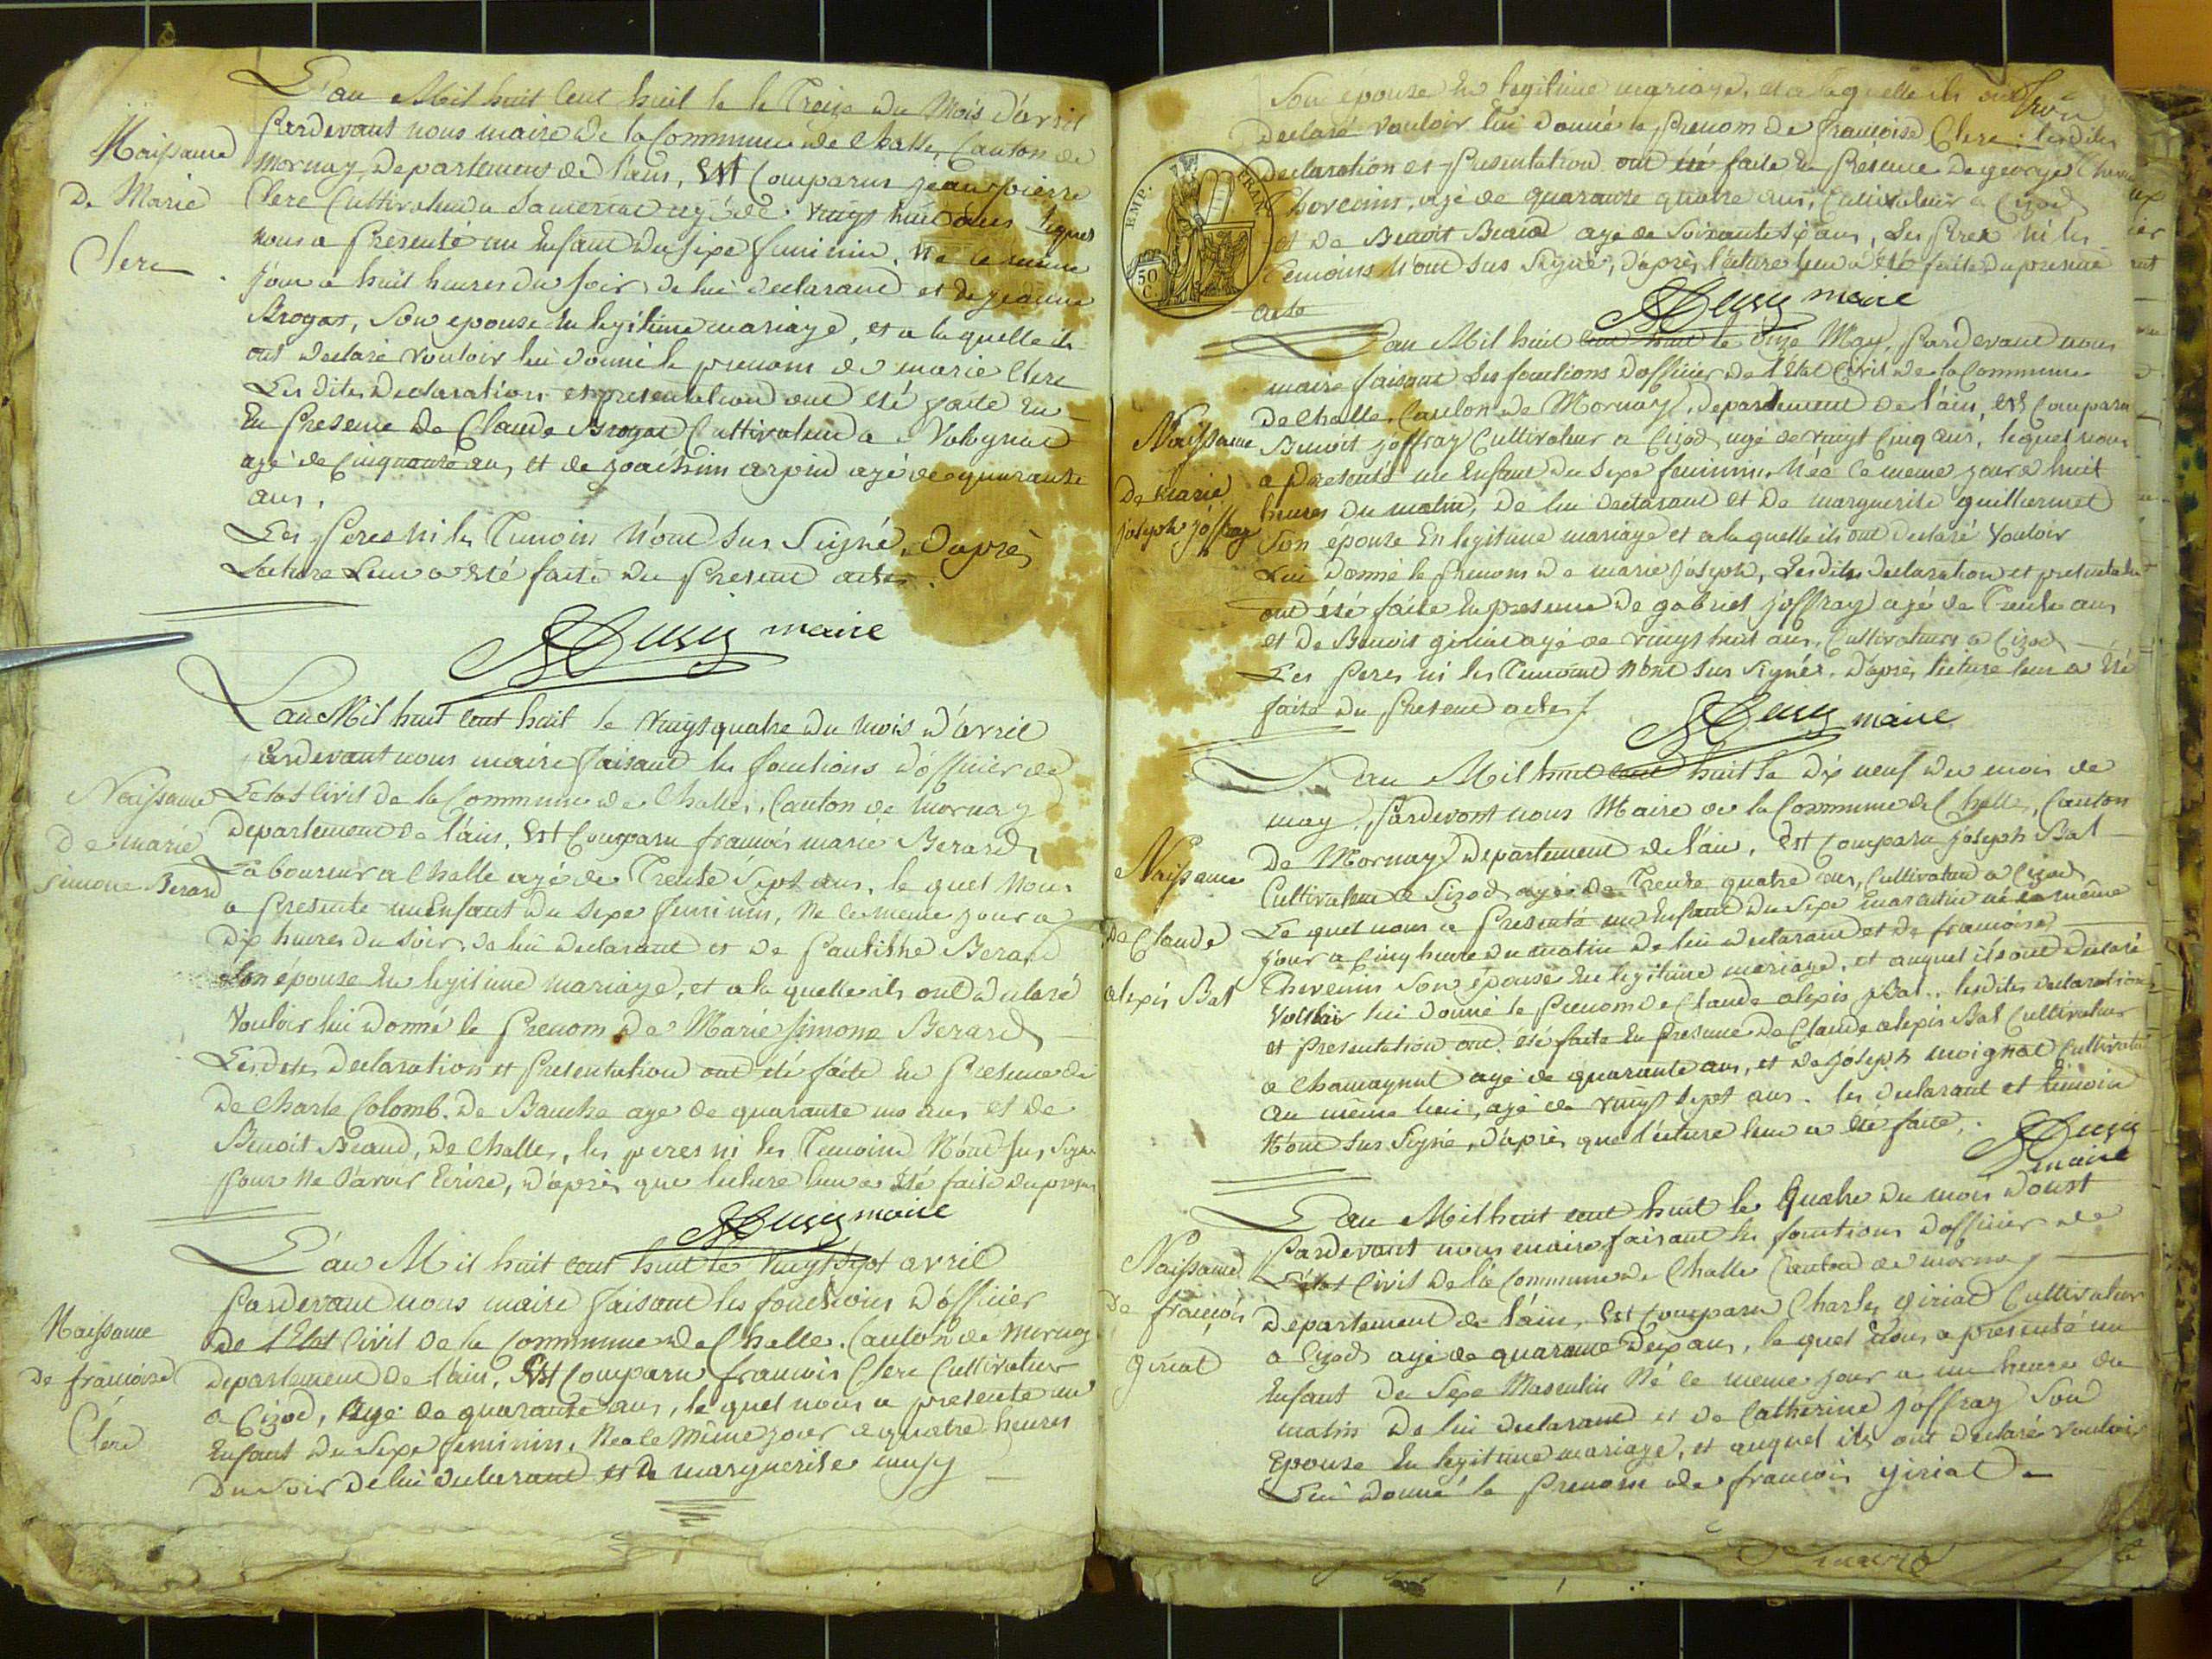 L'an Mil huit Cent huit le le Treize du Mois d'avril
Pardevant nous maire de la Commune de Challe, Canton de
Mornay, Departement de l'ain, Est Comparus jean pierre
Clerc Cultivateur a agé de vingt huit ans lequel
nous a presenté un Enfant du sexe feminin, née le meme
jour a huit heures du soir, de lui declarant et de jeanne
Brogat, son epouse en legitime mariage, et a la quelle ils
ont declaré vouloir lui donné le prenom de marie Clerc
Les dites declaration et presentation ont eté faite en
En presence de Claude Brogat Cultivateur a Volognat
agé de Cinquante ans, et de joachim arpin agé de quarante
ans.
Les peres ni les Temoin n'ont sus Signé, D'après
Lecture Leur a eté faite du present acte.
maire
Naissance
De Marie
Clerc
L'an Mil huit cent huit le vingt quatre du mois d'avril
Pardevant nous maire faisant les fonctions d'officier de
L'etat Civil de la Commune de Challes, Canton de Mornay
Departement de l'ain, Est Comparu francois marie Berard
Laboureur a Challe agé de Trente Sept ans, le quel Nous
a presenté un Enfant du sexe feminin, Ne le meme jour a
Dix heures du soir, de lui declarant et de Berard
son épouse en legitime mariage, et a la quelle ils ont declaré
Vouloir lui donné le prenom de Marie Simone Berard
Lesdites declaration et presentation ont été faite en presence de
De Charle Colomb. De agé de quarante un ans et de
Benoit Beaud, de Challes, les peres ni les Temoins N'ont sus Signé
pour Ne savoir Ecrire, d'après que lecture leur a été faite du present
maire
Naissance
De marie
Simone Berard
L'an Mil huit cent huit le vingt sept avril
Pardevant nous maire faisant les fonctions d'officier
de l'Etat Civil de la Commune de Challe, Canton de Mornay
Departement de l'ain, Est Comparu francois Clerc Cultivateur
a Cizod, agé de quarante ans, le quel nous a presenté un
Enfant du Sexe feminin, Nea le Même jour a quatre heures
Du soir de lui declarant et de marguerite
Naissance
De francoise
Clerc
Son épouse en legitime mariage, et a laquelle ils ont
Declaré vouloir lui donné le prenom de francoise Clerc, lesdites
declaration et presentation ont été faite en presence de george
Thevenin, agé de quarante quatre ans, Cultivateur a Cizod
et de Benoit Beaud agé de Soixante ans, les peres ni les
Temoins n'ont sus Signé, d'après lecture leur a été faite du present
acte
maire
EMP. FRAN.
50 C.
L'an Mil huit cent huit le onze May, Pardevant nous
maire faisant les fonctions d'officier de l'Etat Civil de la Commune
de Challe, Canton de Mornay, departement de l'ain, Est Comparu
Benoit joffray Cultivateur a Cizod, agé de vingt Cinq ans, lequel nous
a presenté un Enfant du Sexe feminin, Née le meme jour a huit
heures du matin, de lui declarant et de marguerite guillermet
Son épouse En legitime mariage et a la quelle ils ont declaré vouloir
Lui donné le prenom de marie joseph, Lesdites declaration et presentation
ont été faite en presence de gabriel joffray agé de Trente ans
et de Benoit giriat agé de vingt huit ans, Cultivateurs a Cizod
Les peres ni les Temoins N'ont sus Signér. d'après lecture leur a été
faite du present acte
maire
Naissance
De marie
joseph joffray
L'an Mil huit cent huit le dix neuf du mois de
may, Pardevant nous Maire de la Commune de Challe, Canton
De Mornay departement de l'ain, Est Comparu joseph Bal
Cultivateur a Sizod agé de Trente quatre ans, Cultivateur a Cizod
Le quel nous a presenté un Enfant du Sexe masculin né le même
jour a Cinq heure du matin de lui declarant et de francoise
Thevenin Son épouse en legitime mariage, et auquel ils ont declaré
Vouloir lui donné le prenom de Claude alexis Bal, lesdites declaration
et presentation ont été faite en presence de Claude alexis Bal Cultivateur
a Chamagnat agé de quarante ans, et de joseph moignat Cultivateur
au même lieu, agé de vingt Sept ans. les declarant et temoin
N'ont sus Signé, d'après que lecture leur a été faite.
maire
Naissance
De Claude
alexis Bal
L'an Mil huit cent huit le quatre du mois d'oust
Pardevant nous maire faisant les fonctions d'officier de
L'état Civil de la Commune de Challe Canton de mornay
departement de l'ain, Est Comparu Charles giriat Cultivateur
a Cizod, agé de quarante Deux ans, le quel nous a presenté un
Enfant du Sexe Masculin Né le meme jour a un heure du
matin De lui declarant et de Catherine joffray Son
Epouse En legitime mariage, et auquel ils ont declaré vouloir
Lui donné le prenom de francois giriat
Naissance
De francois
giriat